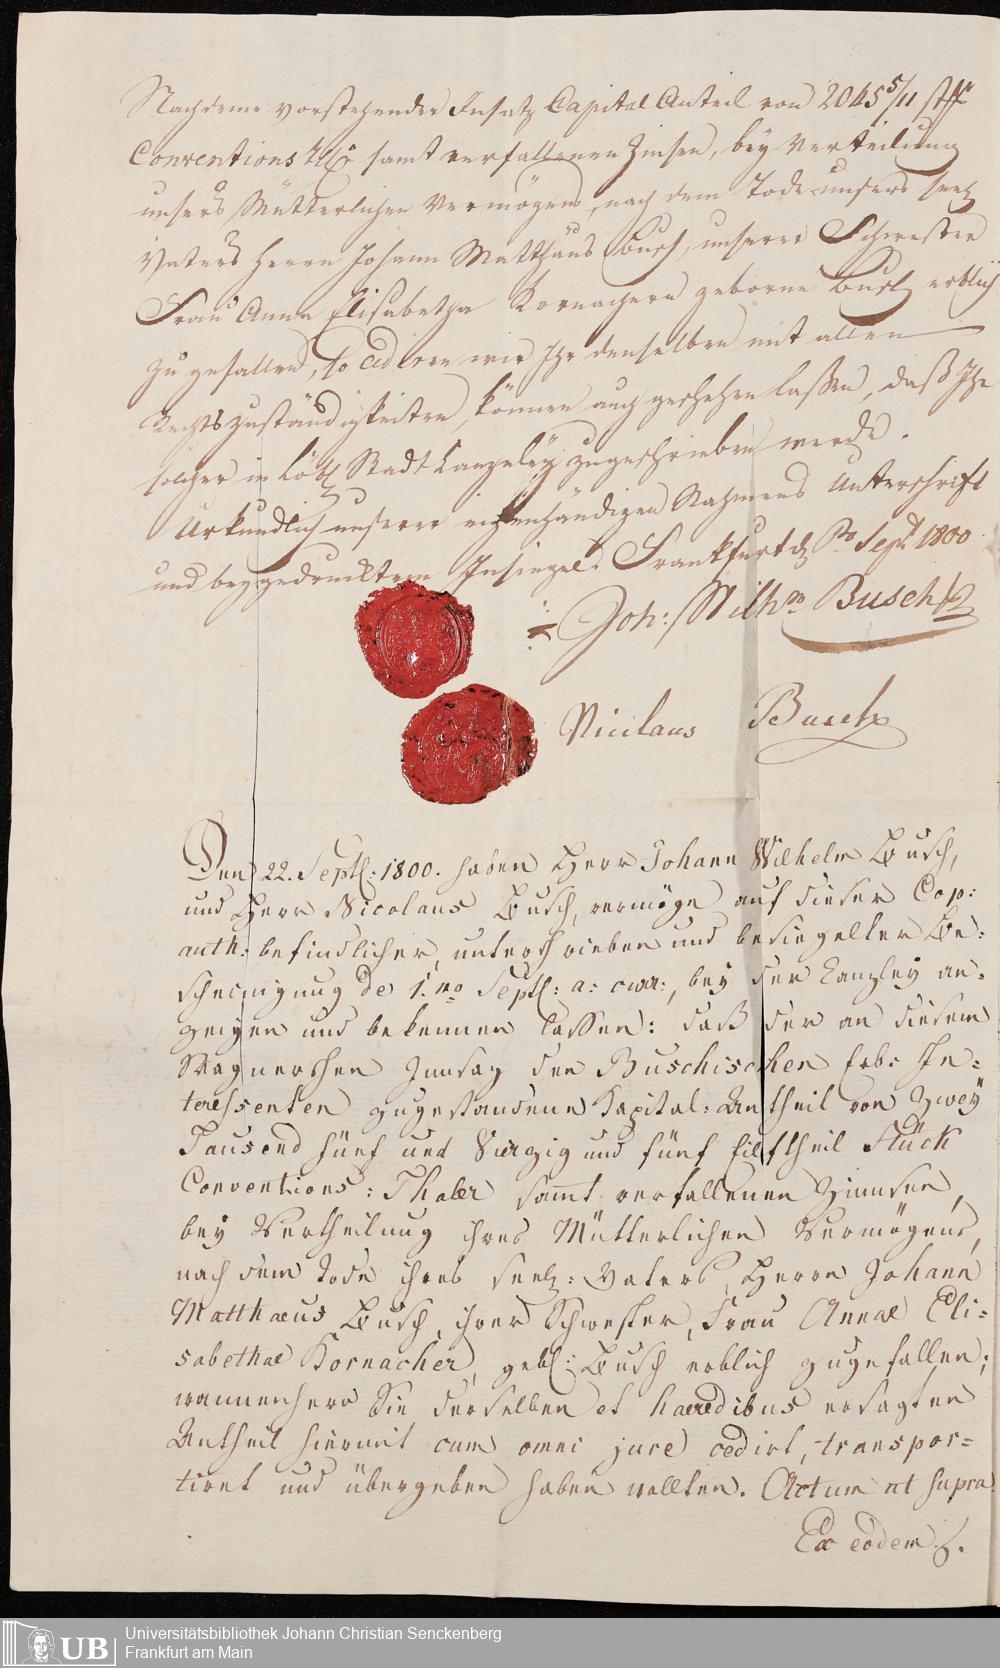 Nachdeme vorstehender Insatz Capital Anteil von 2045 5/11 stk
Conventions samt verfallenen Zinsen, bey Verteilung
unsers Mütterlichen Vermögens, nach dem Tode unsers seel
Vaters Herrn Johann Matthäus Busch, unserer Schwester
Frau Anna Elisabetha Kornachern geborne Busch erblich
zu gefallen, so cediren wir Ihr denselben mit allen
Rechtszuständigkeiten, können auch geschehen laßen, daß Ihr
solcher in Löbl Stadt Canzeley zugeschrieben werde.
Urkundlich unserer eigenhändigen Nahmens Unterschrift
und beygedrucktem Insiegel. Frankfurt d Sept 1800
Joh: Wilhm Busch
Nicolaus Busch
Den 22. Septb: 1800. haben Herr Johann Wilhelm Busch,
und Herr Nicolaus Busch, vermöge auf dieser Cop:
auth: befindlicher, unterschrieben und besiegelter Be:
scheinigung de 1.mo Septb: a: curr:, bey der Canzley an:
zeigen und bekennen lassen: daß der an diesem
Wagnerschen Innsaz den Buschischen Erbs In:
teressenten zugestandene Kapital: Antheil von Zwey
Tausend fünf und Vierzig und fünf Eilftheil Stück
Conventions: Thaler samt verfallenen Zinnsen,
bey Vertheilung ihres Mütterlichen Vermögens,
nach dem Tode ihres seel: Vaters, Herrn Johann
Matthaeus Busch, ihrer Schwester, Frau Annae Eli=
sabethae Kornacher, geb: Busch erblich zugefallen;
wannenhero Sie derselben et haeredibus ersagten
Antheil hiermit cum omni jure cedirt, transpor=
tiret und übergeben haben wollten. Actum ut supra
Ex eodem.
UB
Universitätsbibliothek Johann Christian Senckenberg
Frankfurt am Main